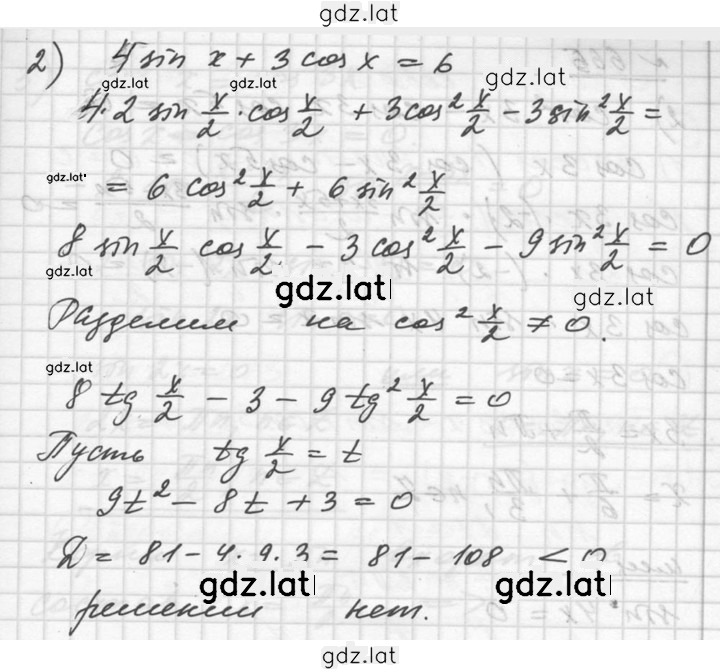 gdz.lat
2) 4 sin x + 3 cos x = 6
gdz.lat gdz.lat gdz.lat
4·2 sin x/2 · cos x/2 + 3cos² x/2 - 3sin² x/2 =
gdz.lat
= 6 cos² x/2 + 6 sin² x/2
8 sin x/2 cos x/2 - 3 cos² x/2 - 9 sin² x/2 = 0
gdz.lat gdz.lat gdz.lat
Разделим на cos² x/2 ≠ 0.
gdz.lat
8 tg x/2 - 3 - 9 tg² x/2 = 0
Пусть tg x/2 = t
9t² - 8t + 3 = 0
D = 81 - 4·9·3 = 81 - 108 < 0
gdz.lat gdz.lat
решений нет.
gdz.lat